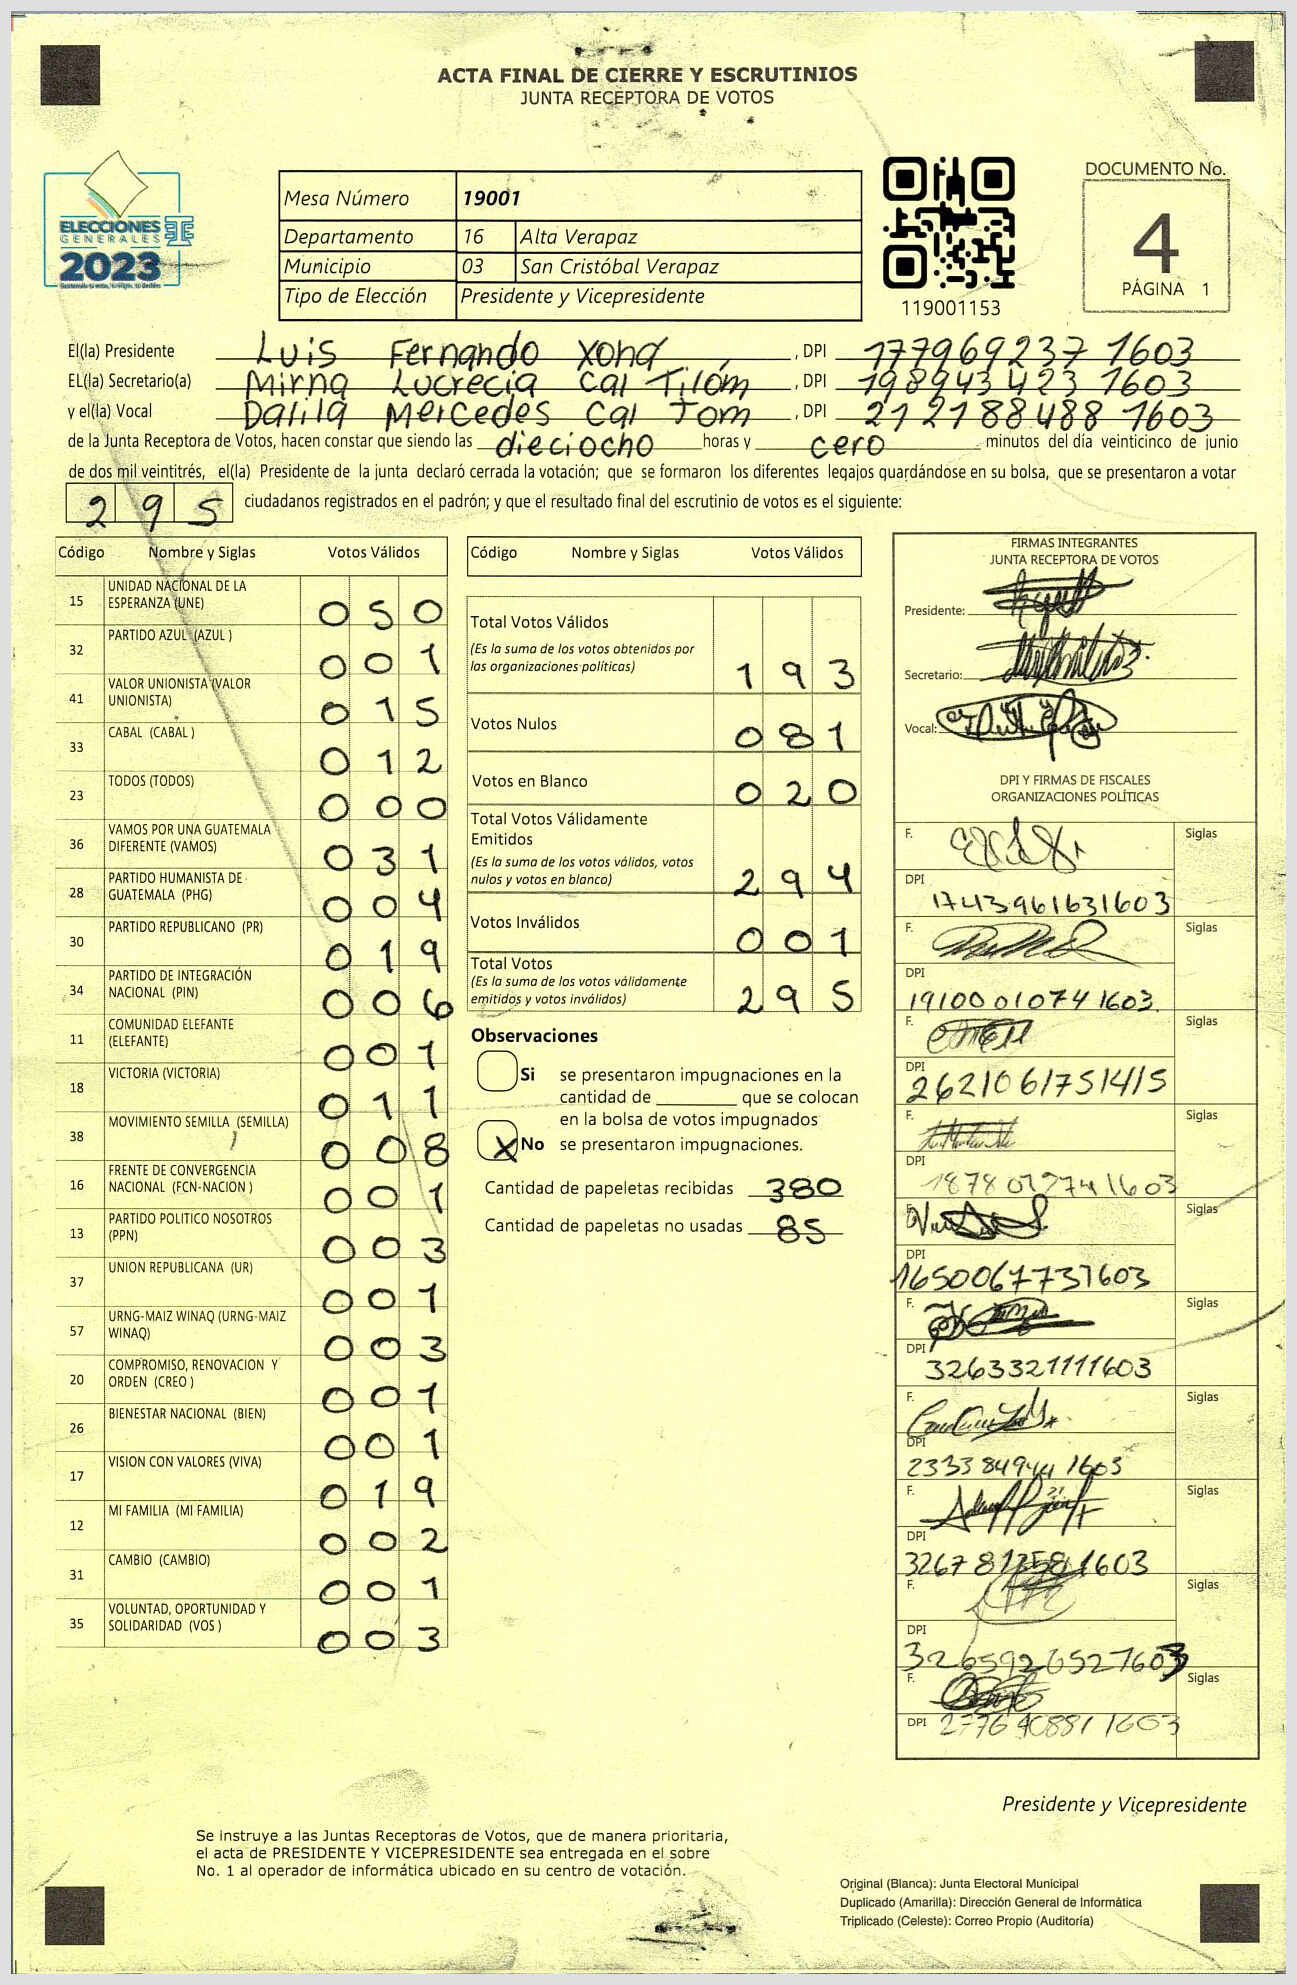 ACTA FINAL DE CIERRE Y ESCRUTINIOS
JUNTA RECEPTORA DE VOTOS
ELECCIONES
GENERALES
2023
Mesa Número 19001
Departamento 16 Alta Verapaz
Municipio 03 San Cristóbal Verapaz
Tipo de Elección Presidente y Vicepresidente
119001153
DOCUMENTO No.
4
PÁGINA 1
El(la) Presidente Luis Fernando Xoná, DPI 177969237 1603
EL(la) Secretario(a) Mirna Lucrecia Cal Tilóm, DPI 198943423 1603
y el(la) Vocal Dalila Mercedes Cal Jom, DPI 212188488 1603
de la Junta Receptora de Votos, hacen constar que siendo las dieciocho horas y cero minutos del día veinticinco de junio
de dos mil veintitrés, el(la) Presidente de la junta declaró cerrada la votación; que se formaron los diferentes legajos guardándose en su bolsa, que se presentaron a votar
295 ciudadanos registrados en el padrón; y que el resultado final del escrutinio de votos es el siguiente:
Código Nombre y Siglas Votos Válidos
15 UNIDAD NACIONAL DE LA
ESPERANZA (UNE) 050
32 PARTIDO AZUL (AZUL ) 001
41 VALOR UNIONISTA (VALOR
UNIONISTA) 015
33 CABAL (CABAL ) 012
23 TODOS (TODOS) 000
36 VAMOS POR UNA GUATEMALA
DIFERENTE (VAMOS) 031
28 PARTIDO HUMANISTA DE
GUATEMALA (PHG) 004
30 PARTIDO REPUBLICANO (PR) 019
34 PARTIDO DE INTEGRACIÓN
NACIONAL (PIN) 006
11 COMUNIDAD ELEFANTE
(ELEFANTE) 001
18 VICTORIA (VICTORIA) 011
38 MOVIMIENTO SEMILLA (SEMILLA) 008
16 FRENTE DE CONVERGENCIA
NACIONAL (FCN-NACION ) 001
13 PARTIDO POLITICO NOSOTROS
(PPN) 003
37 UNION REPUBLICANA (UR) 001
57 URNG-MAIZ WINAQ (URNG-MAIZ
WINAQ) 003
20 COMPROMISO, RENOVACION Y
ORDEN (CREO ) 001
26 BIENESTAR NACIONAL (BIEN) 001
17 VISION CON VALORES (VIVA) 019
12 MI FAMILIA (MI FAMILIA) 002
31 CAMBIO (CAMBIO) 001
35 VOLUNTAD, OPORTUNIDAD Y
SOLIDARIDAD (VOS ) 003
Código Nombre y Siglas Votos Válidos
Total Votos Válidos
(Es la suma de los votos obtenidos por
las organizaciones políticas) 193
Votos Nulos 081
Votos en Blanco 020
Total Votos Válidamente
Emitidos
(Es la suma de los votos válidos, votos
nulos y votos en blanco) 294
Votos Inválidos 001
Total Votos
(Es la suma de los votos válidamente
emitidos y votos inválidos) 295
Observaciones
Si se presentaron impugnaciones en la
cantidad de ________ que se colocan
en la bolsa de votos impugnados
X No se presentaron impugnaciones.
Cantidad de papeletas recibidas 380
Cantidad de papeletas no usadas 85
FIRMAS INTEGRANTES
JUNTA RECEPTORA DE VOTOS
Presidente:
Secretario:
Vocal:
DPI Y FIRMAS DE FISCALES
ORGANIZACIONES POLÍTICAS
F. Siglas
DPI 1743961631603
F. Siglas
DPI 1910001074 1603
F. Siglas
DPI 2621061751415
F. Siglas
DPI
F. Siglas
DPI 1650067731603
F. Siglas
DPI 3263321111603
F. Siglas
DPI
F. Siglas
DPI
F. Siglas
DPI 3265926521603
F. Siglas
DPI
Presidente y Vicepresidente
Se instruye a las Juntas Receptoras de Votos, que de manera prioritaria,
el acta de PRESIDENTE Y VICEPRESIDENTE sea entregada en el sobre
No. 1 al operador de informática ubicado en su centro de votación.
Original (Blanca): Junta Electoral Municipal
Duplicado (Amarilla): Dirección General de Informática
Triplicado (Celeste): Correo Propio (Auditoría)